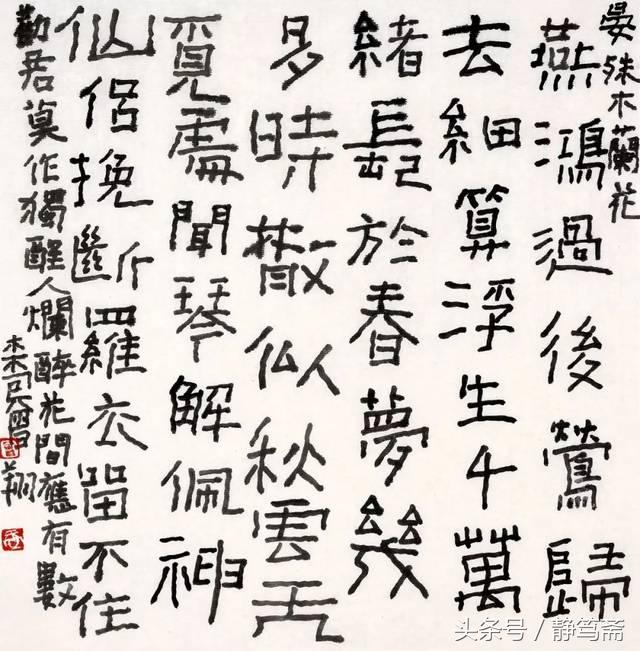 晏殊木蘭花
燕鴻過後鶯歸
去細算浮生千萬
緒長於春夢幾
多時散似秋雲无
覓處聞琴解佩神
仙侶挽斷羅衣留不住
勸君莫作獨醒人爛醉花間應有數
曾翔
头条号 / 静笃斋